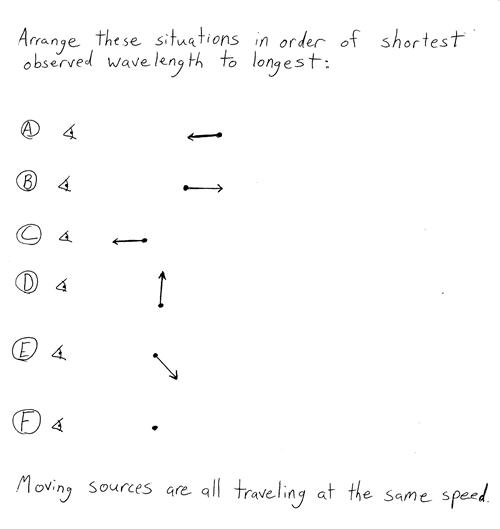 Arrange these situations in order of shortest
observed wavelength to longest:
A
B
C
D
E
F
Moving sources are all traveling at the same speed.